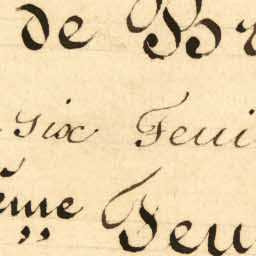 de Br
Six Feui
ème Feu